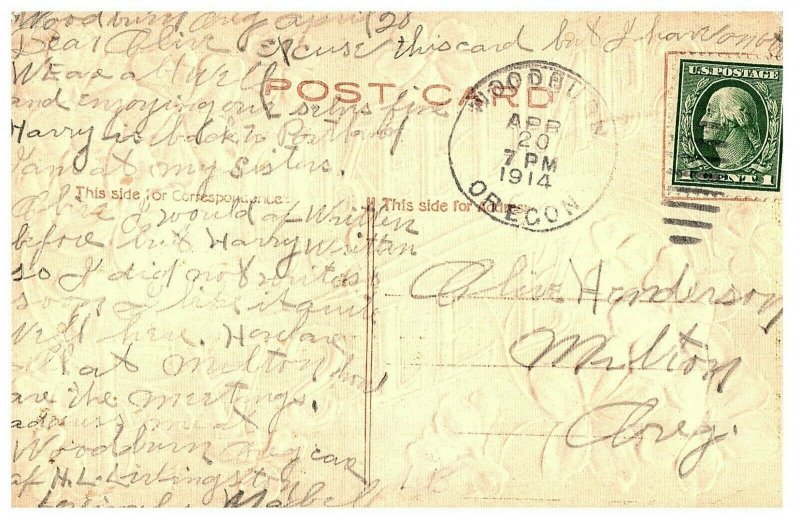 Woodburn Oreg April 20
Dear Olive excuse this card but I have not
WE are all well
POST CARD
and enjoying our selves fine
Harry is back to Portland
I am at my Sisters.
This side for Correspondence
Olive I would of Written
before but Harry Writtan
so I did not write as
soon I like it quite
Well here. How are
all at Milton how
are the meetings.
address me at
Woodburn Oreg care
of H.L. Livingston
Mabel
WOODBURN
APR
20
7 PM
1914
OREGON
U.S. POSTAGE
1 CENT 1
This side for Address
Olive Henderson
Milton
Oreg.